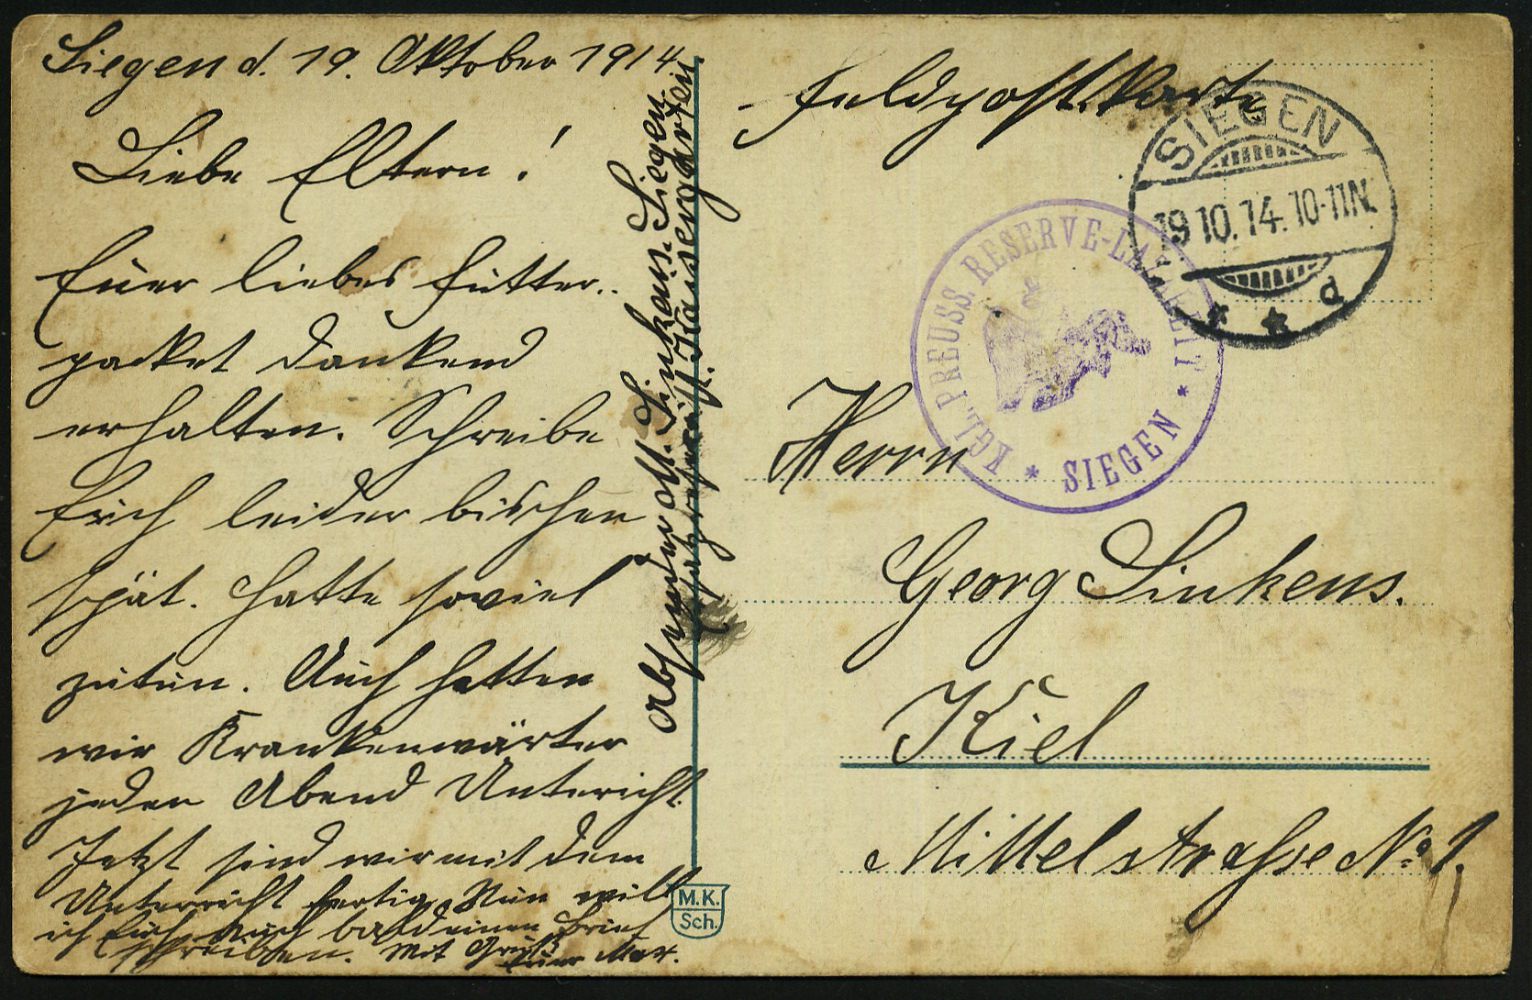 Siegen d. 19. Oktober 1914
Liebe Eltern!
Euer liebes Futter-
packet dankend
erhalten. Schreibe
Euch leider bischen
spät. Hatte soviel
zutun. Auch hatten
wir Krankenwärter
jeden Abend Untericht.
Jetzt sind wir mit dem
Unterricht fertig. Nun will
ich Euch auch bald einen Brief
schreiben. Mit Gruß
Euer Max.
Absender Ott. Sinkens. Siegen
Kaisergarten
Feldpost.Karte
SIEGEN
19.10.14.10-11N.
* * d
KGL. PREUSS. RESERVE-LAZARETT
* SIEGEN *
Herrn
Georg Sinkens.
Kiel
Mittelstrasse No 1.
M.K.
Sch.